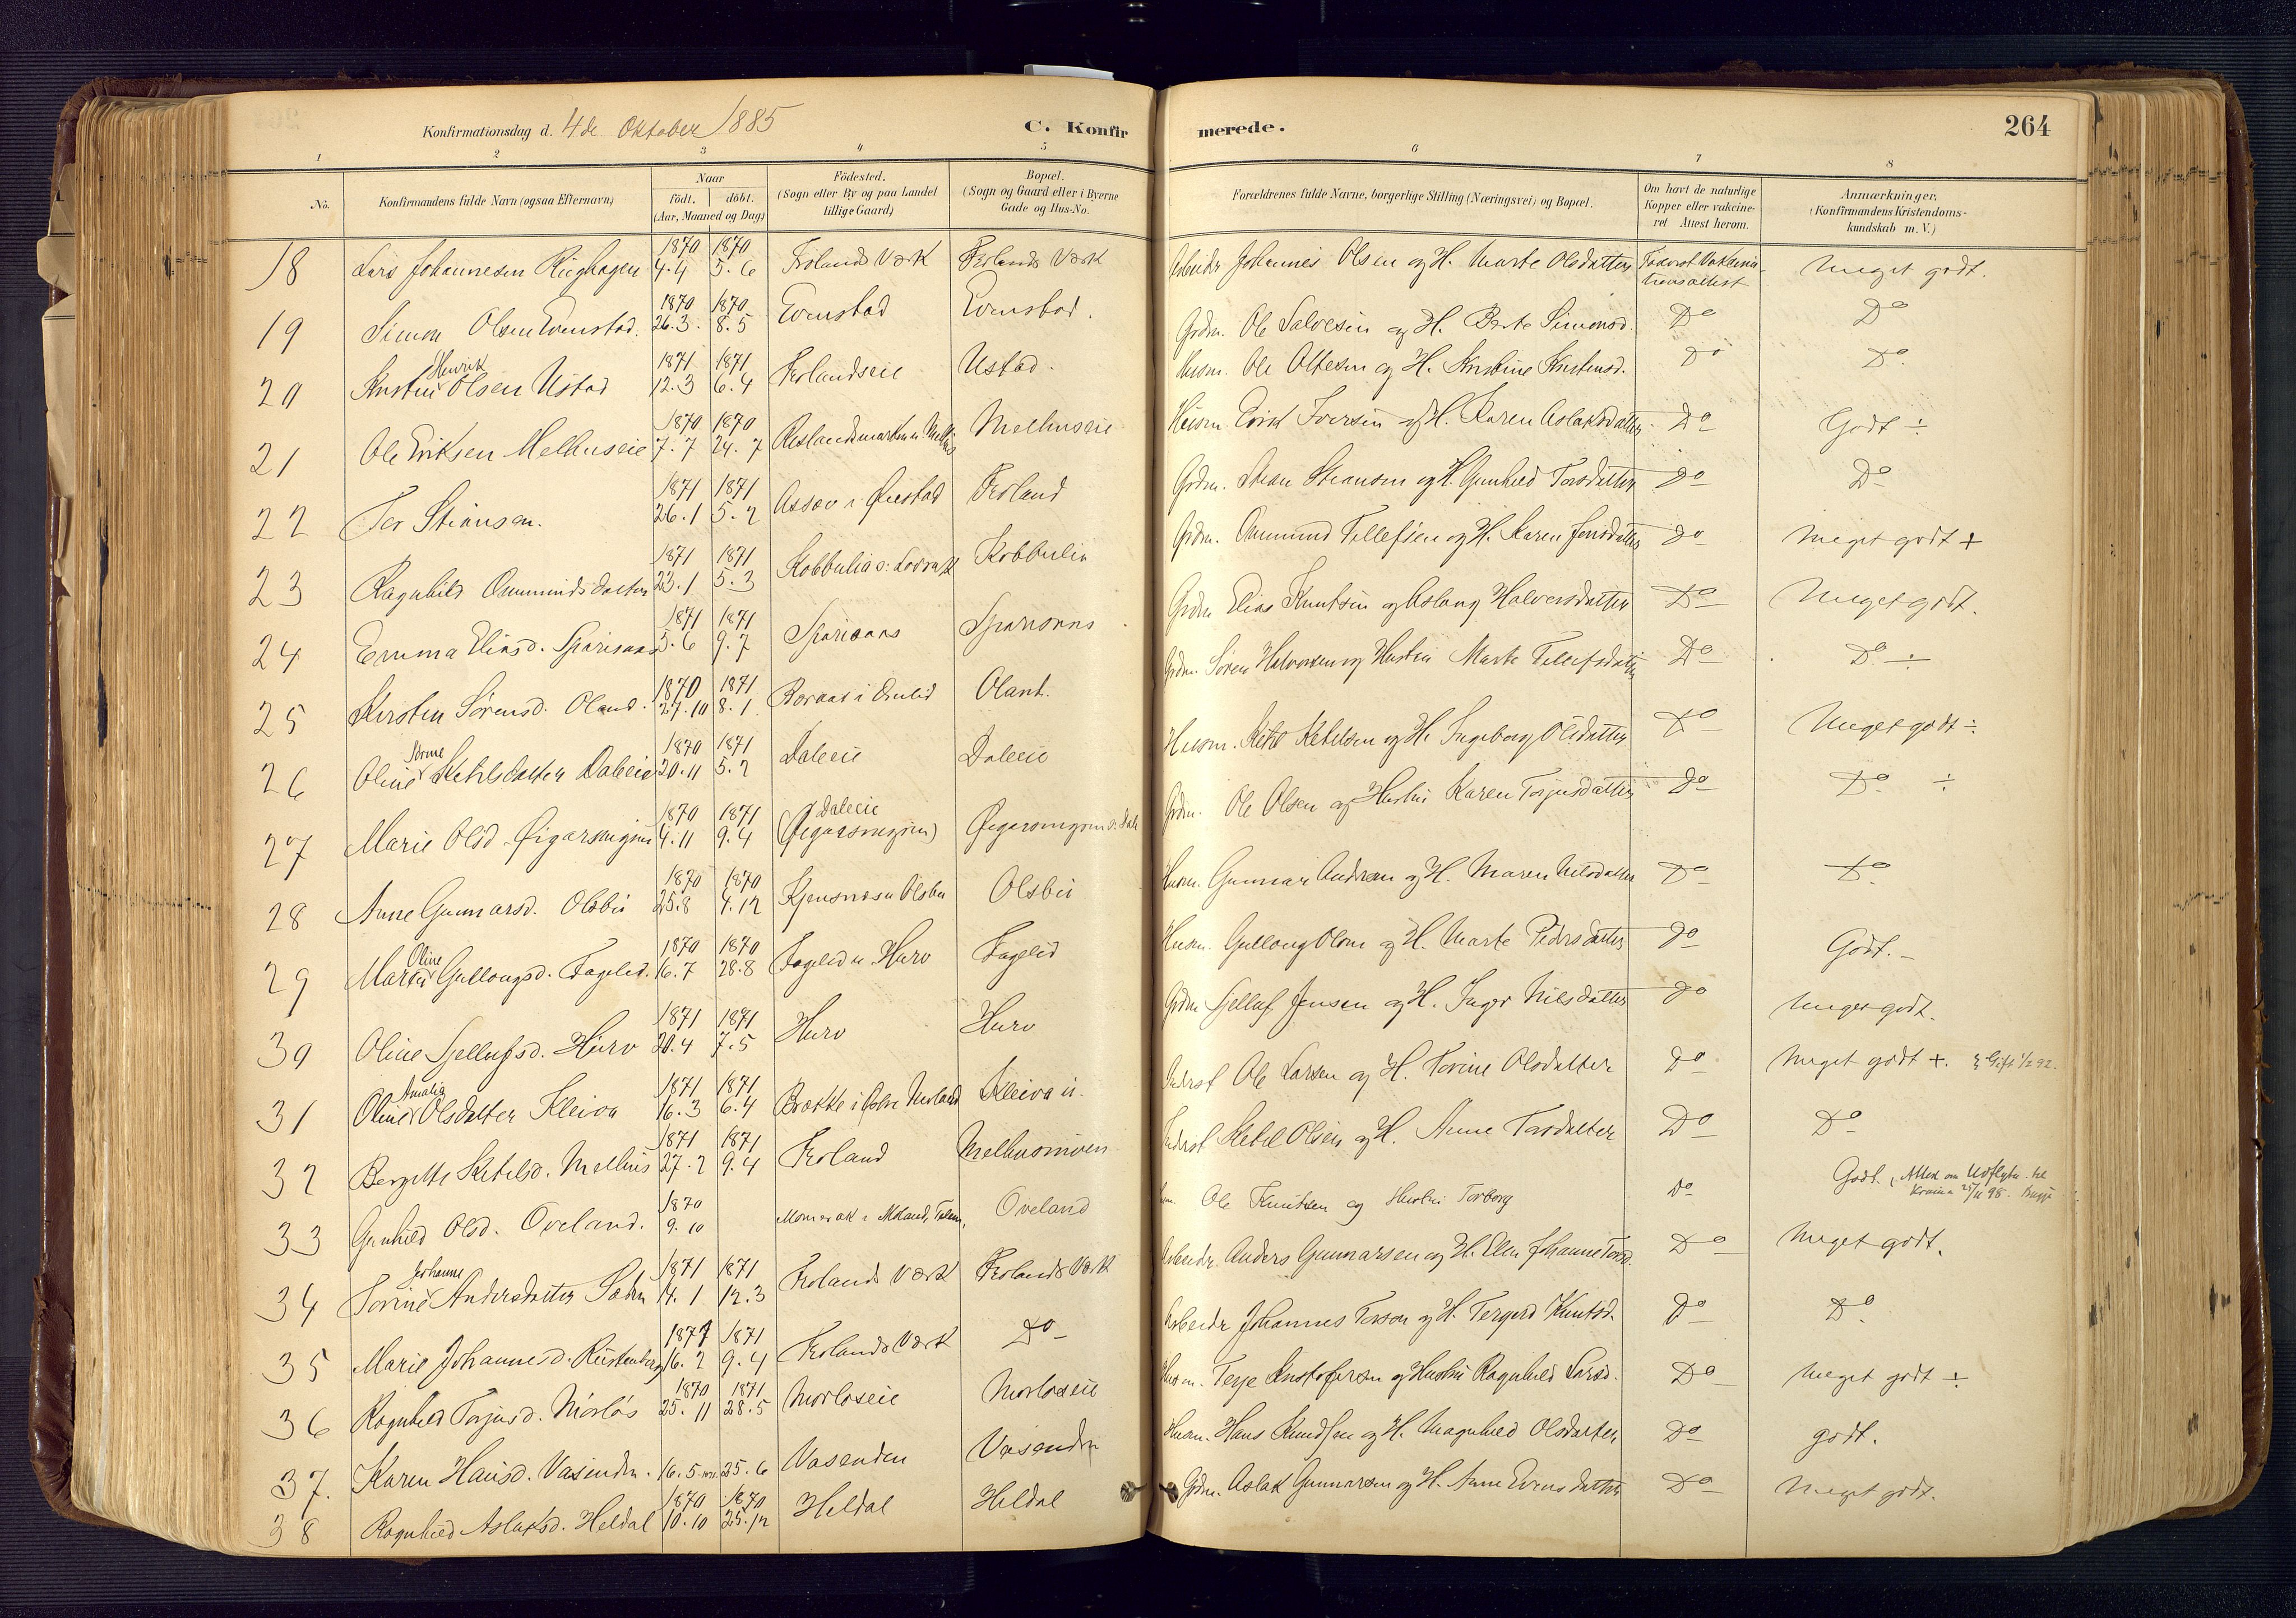 Konfirmationsdag d. 4de Oktober 1885
C. Konfir
merede.
264
1 2 3 4 5 6 7 8
No.
Konfirmandens fulde Navn (ogsaa Efternavn)
Naar
født. | døbt.
(Aar, Maaned og Dag)
Fødested.
(Sogn eller By og paa Landet
tillige Gaard)
Bopæl.
(Sogn og Gaard eller i Byerne
Gade og Hus-No.
Forældrenes fulde Navne, borgerlige Stilling (Næringsvei) og Bopæl.
Om havt de naturlige
Kopper eller vakcine-
ret Attest herom.
Anmærkninger,
(Konfirmandens Kristendoms-
kundskab m. V.)
1870 1870
18 Lars Johannesen 4.4 5.6 Frolands Værk Frolands Værk Arbeidr Johannes Olsen og H. Marte Olsdatter Meget godt.
1870 1870
19 Simon Olsen Evenstad. 26.3. 8.5 Evenstad Evenstad. Grdm. Ole Salvesen og H. Berte Simonsd. Do Do
Henrik 1871 1871
20 Olsen Ustad 12.3 6.4 Frolandseie Ustad. Husm. Ole Ottesen og H. Kristine Do Do
1870 1870
21 Ole Eriksen Melhuseie 7.7 24.7 Melhuseie Husm Erik Iversen og H. Karen Aslaksdatter Do Godt ÷
1871 1871
22 Ter Stiansen. 26.1 5.2 Assev i Øiestad Froland Grdm. Stian Stiansen og H. Gunhild Torsdatter Do Do
1871 1871
23 Ragnhild Ommundsdatter 23.1 5.3 Kobbulia Grdm. Ommund Tellefsen og H. Karen Jensdatter Do Meget godt +
1871 1871
24 Emma Eliasd. 5.6 9.7 Grdm Elias Knutsen og Aslaug Halvorsdatter Do Meget godt.
1870 1871
25 Kirsten Sørensd. Oland. 27.10 8.1 Grdm. Søren Halvorsen og Hustru Marte Tellefsdatter Do Do ÷
1870 1871
26 Oline Ketilsdatter Daleeie 20.11 5.2 Daleeie Daleeie Husm. Ketil Ketilsen og H. Ingeborg Olsdatter Do Meget godt ÷
1870 1871 Daleeie
27 Marie Olsd 4.11 9.4 Grdm. Ole Olsen og Hustru Karen Torjusdatter Do Do ÷
1870 1870
28 Anne Gunnarsd. Olsbu 25.8 4.12 Olsbu Husm. Gunnar Andersen og H. Maren Nilsdatter Do Do
Oline 1870 1870
29 Marta Gullougsd. Fagelid. 16.7 28.8 Fagelid u. Hurv Fagelid Husm. Gulloug Olsen og H. Marte Pedersdatter Do Godt.
1871 1871
30 Oline Sjellufsd. Hurv 20.4 7.5 Hurv Hurv Grdm Sjelluf Jensen og H. Inger Nilsdatter Do Meget godt.
Amalia 1871 1871
31 Oline Olsdatter Kleiva 16.3 6.4 Kleiva Inderst Ole Larsen og H. Torine Olsdatter Do Meget godt +. Gift 1/2 92.
1871 1871
32 Bergitte Ketilsd. Melhus 27.2 9.4 Froland Melhusmoen Inderst Ketil Olsen og H. Anne Torsdatter Do Do
1870
33 Gunhild Olsd. Oveland. 9.10 Oveland Ole Knutsen og Hustru Torborg Do Godt. Attest om Udflytn. til
25/11 98.
Johanne 1871 1871
34 Torine Andersdatter 14.1 12.3 Frolands Værk Frolands Værk Arbeidr. Anders Gunnarsen og H. Elen Johanne Do Meget godt.
1871 1871
35 Marie Johannesd. 16.2 9.4 Frolands Værk Do Arbeidr Johannes Torson og H. Tergerd Knutsd. Do Do
1870 1871
36 Ragnhild Torjusd. Mørløs 25.11 28.5 Mørløseie Mørløseie Husm. Terje Kristofersen og Hustru Ragnhild Larsd. Do Meget godt ÷
37. Karen Hansd. Vasenden. 16.5 25.6 Vasenden Vasenden Husm. Hans Knudsen og H. Magnhild Olsdatter Do godt.
1870 1870
38 Ragnhild Aslaksd. Heldal 10.10 25.12 Heldal Heldal Grdm. Aslak Gunnarsen og H. Anne Evensdatter Do Meget godt.